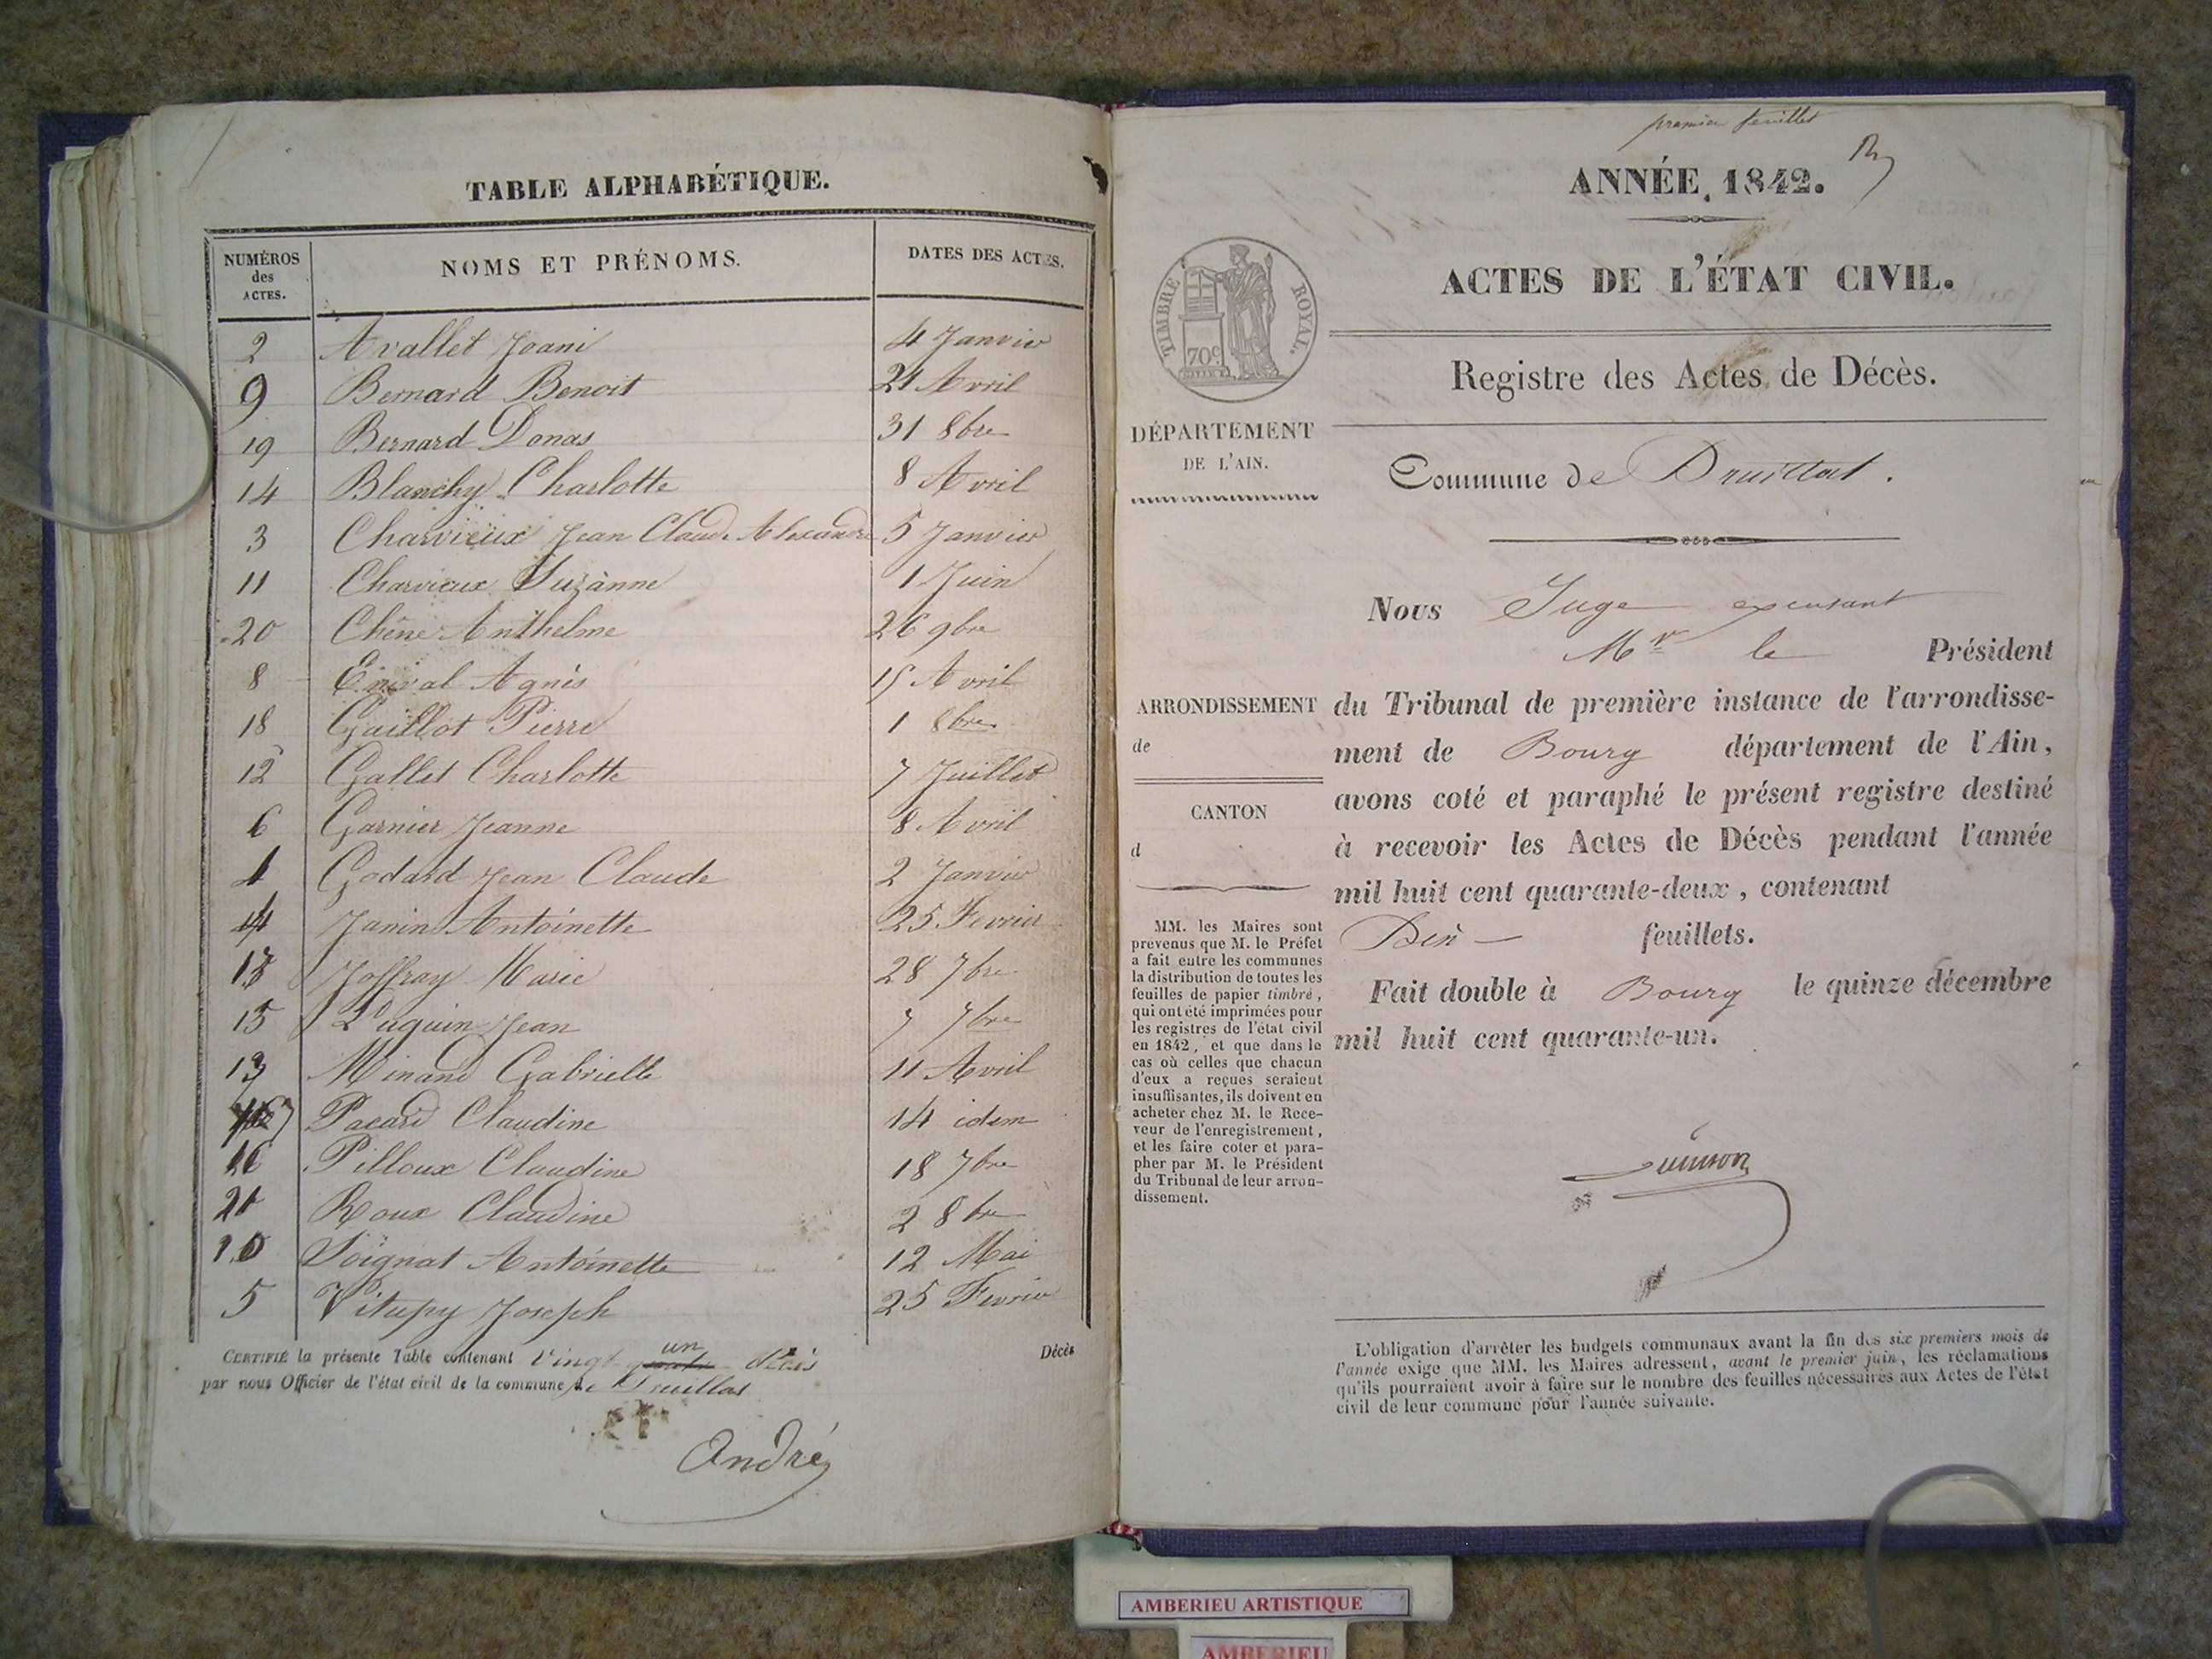 TABLE ALPHABÉTIQUE.
NUMÉROS des ACTES. NOMS ET PRÉNOMS. DATES DES ACTES.
2 Avallet Joani 4 Janvier
9 Bernard Benoit 21 Avril
19 Bernard Donas 31 8bre
14 Blanchy Charlotte 8 Avril
3 Charvieux Jean Claude Alexandre 5 Janvier
11 Charvieux Suzanne 1 Juin
20 Chêne Anthelme 26 9bre
8 Agnès 15 Avril
18 Gaillot Pierre 1 8bre
12 Gallet Charlotte 7 Juillet
6 Garnier Jeanne 8 Avril
1 Godard Jean Claude 2 Janvier
4 Janin Antoinette 25 Fevrier
Joffray Marie 28 7bre
15 Luquin Jean 7 7bre
13 Minand Gabrielle 11 Avril
Pacard Claudine 14 idem
16 Pilloux Claudine 18 7bre
Roux Claudine 2 8bre
10 Soignat Antoinette 12 Mai
5 Vitupy Joseph 25 Fevrier
CERTIFIÉ la présente Table contenant vingt un décès
par nous Officier de l'état civil de la commune de Druillat
Décès
André
premier feuillet
ANNÉE 1842.
ACTES DE L'ÉTAT CIVIL.
TIMBRE ROYAL.
70c
Registre des Actes de Décès.
DÉPARTEMENT
DE L'AIN.
Commune de Druillat.
Nous Juge excusant
Mr le Président
ARRONDISSEMENT
de
CANTON
d
du Tribunal de première instance de l'arrondisse-
ment de Bourg département de l'Ain,
avons coté et paraphé le présent registre destiné
à recevoir les Actes de Décès pendant l'année
mil huit cent quarante-deux, contenant
feuillets.
Fait double à Bourg le quinze décembre
mil huit cent quarante-un.
MM. les Maires sont
prévenus que M. le Préfet
a fait entre les communes
la distribution de toutes les
feuilles de papier timbré,
qui ont été imprimées pour
les registres de l'état civil
en 1842, et que dans le
cas où celles que chacun
d'eux a reçues seraient
insuffisantes, ils doivent en
acheter chez M. le Rece-
veur de l'enregistrement,
et les faire coter et para-
pher par M. le Président
du Tribunal de leur arron-
dissement.
L'obligation d'arrêter les budgets communaux avant la fin des six premiers mois de
l'année exige que MM. les Maires adressent, avant le premier juin, les réclamations
qu'ils pourraient avoir à faire sur le nombre des feuilles nécessaires aux Actes de l'état
civil de leur commune pour l'année suivante.
AMBERIEU ARTISTIQUE
AMBERIEU